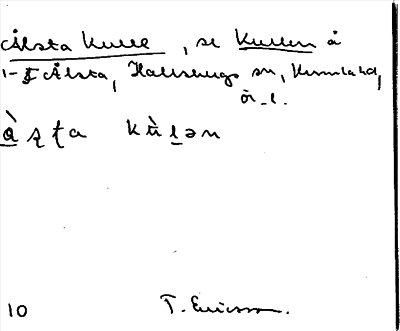 Ålsta Kulle, se Kullen å
1-I Ålsta, Hallsbergs sn, Kumla hd,
Ör. l.
àʂʈa kùlən
10 T. Ericsson.